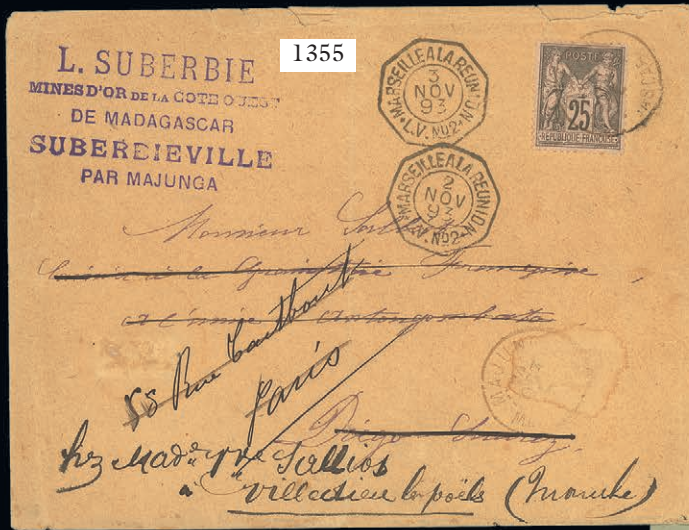 1355
L. SUBERBIE
MINES D'OR DE LA COTE OUEST
DE MADAGASCAR
SUBERBIEVILLE
PAR MAJUNGA
MARSEILLE A LA REUNION
3
NOV
93
L.V. No2
MARSEILLE A LA REUNION
2
NOV
93
L.V. No2
POSTE
25
REPUBLIQUE FRANCAISE
Monsieur
à la
Française
Diego Suarez
Rue Taitbout
Paris
chez Mad Vve Sallios
à Villedieu les poëls (Manche)